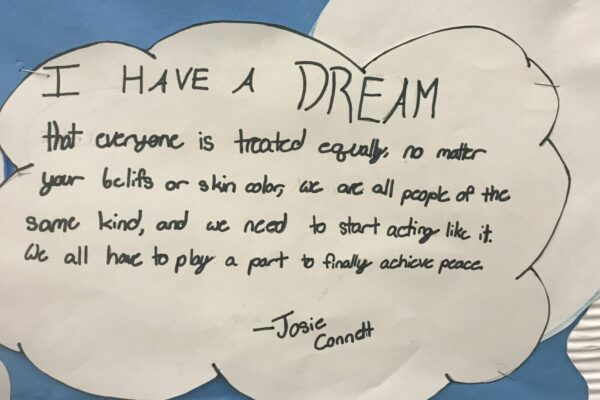 I HAVE A DREAM
that everyone is treated equally, no matter
your belifs or skin color, we are all people of the
same kind, and we need to start acting like it.
We all have to play a part to finally achieve peace.
—Josie
Connett